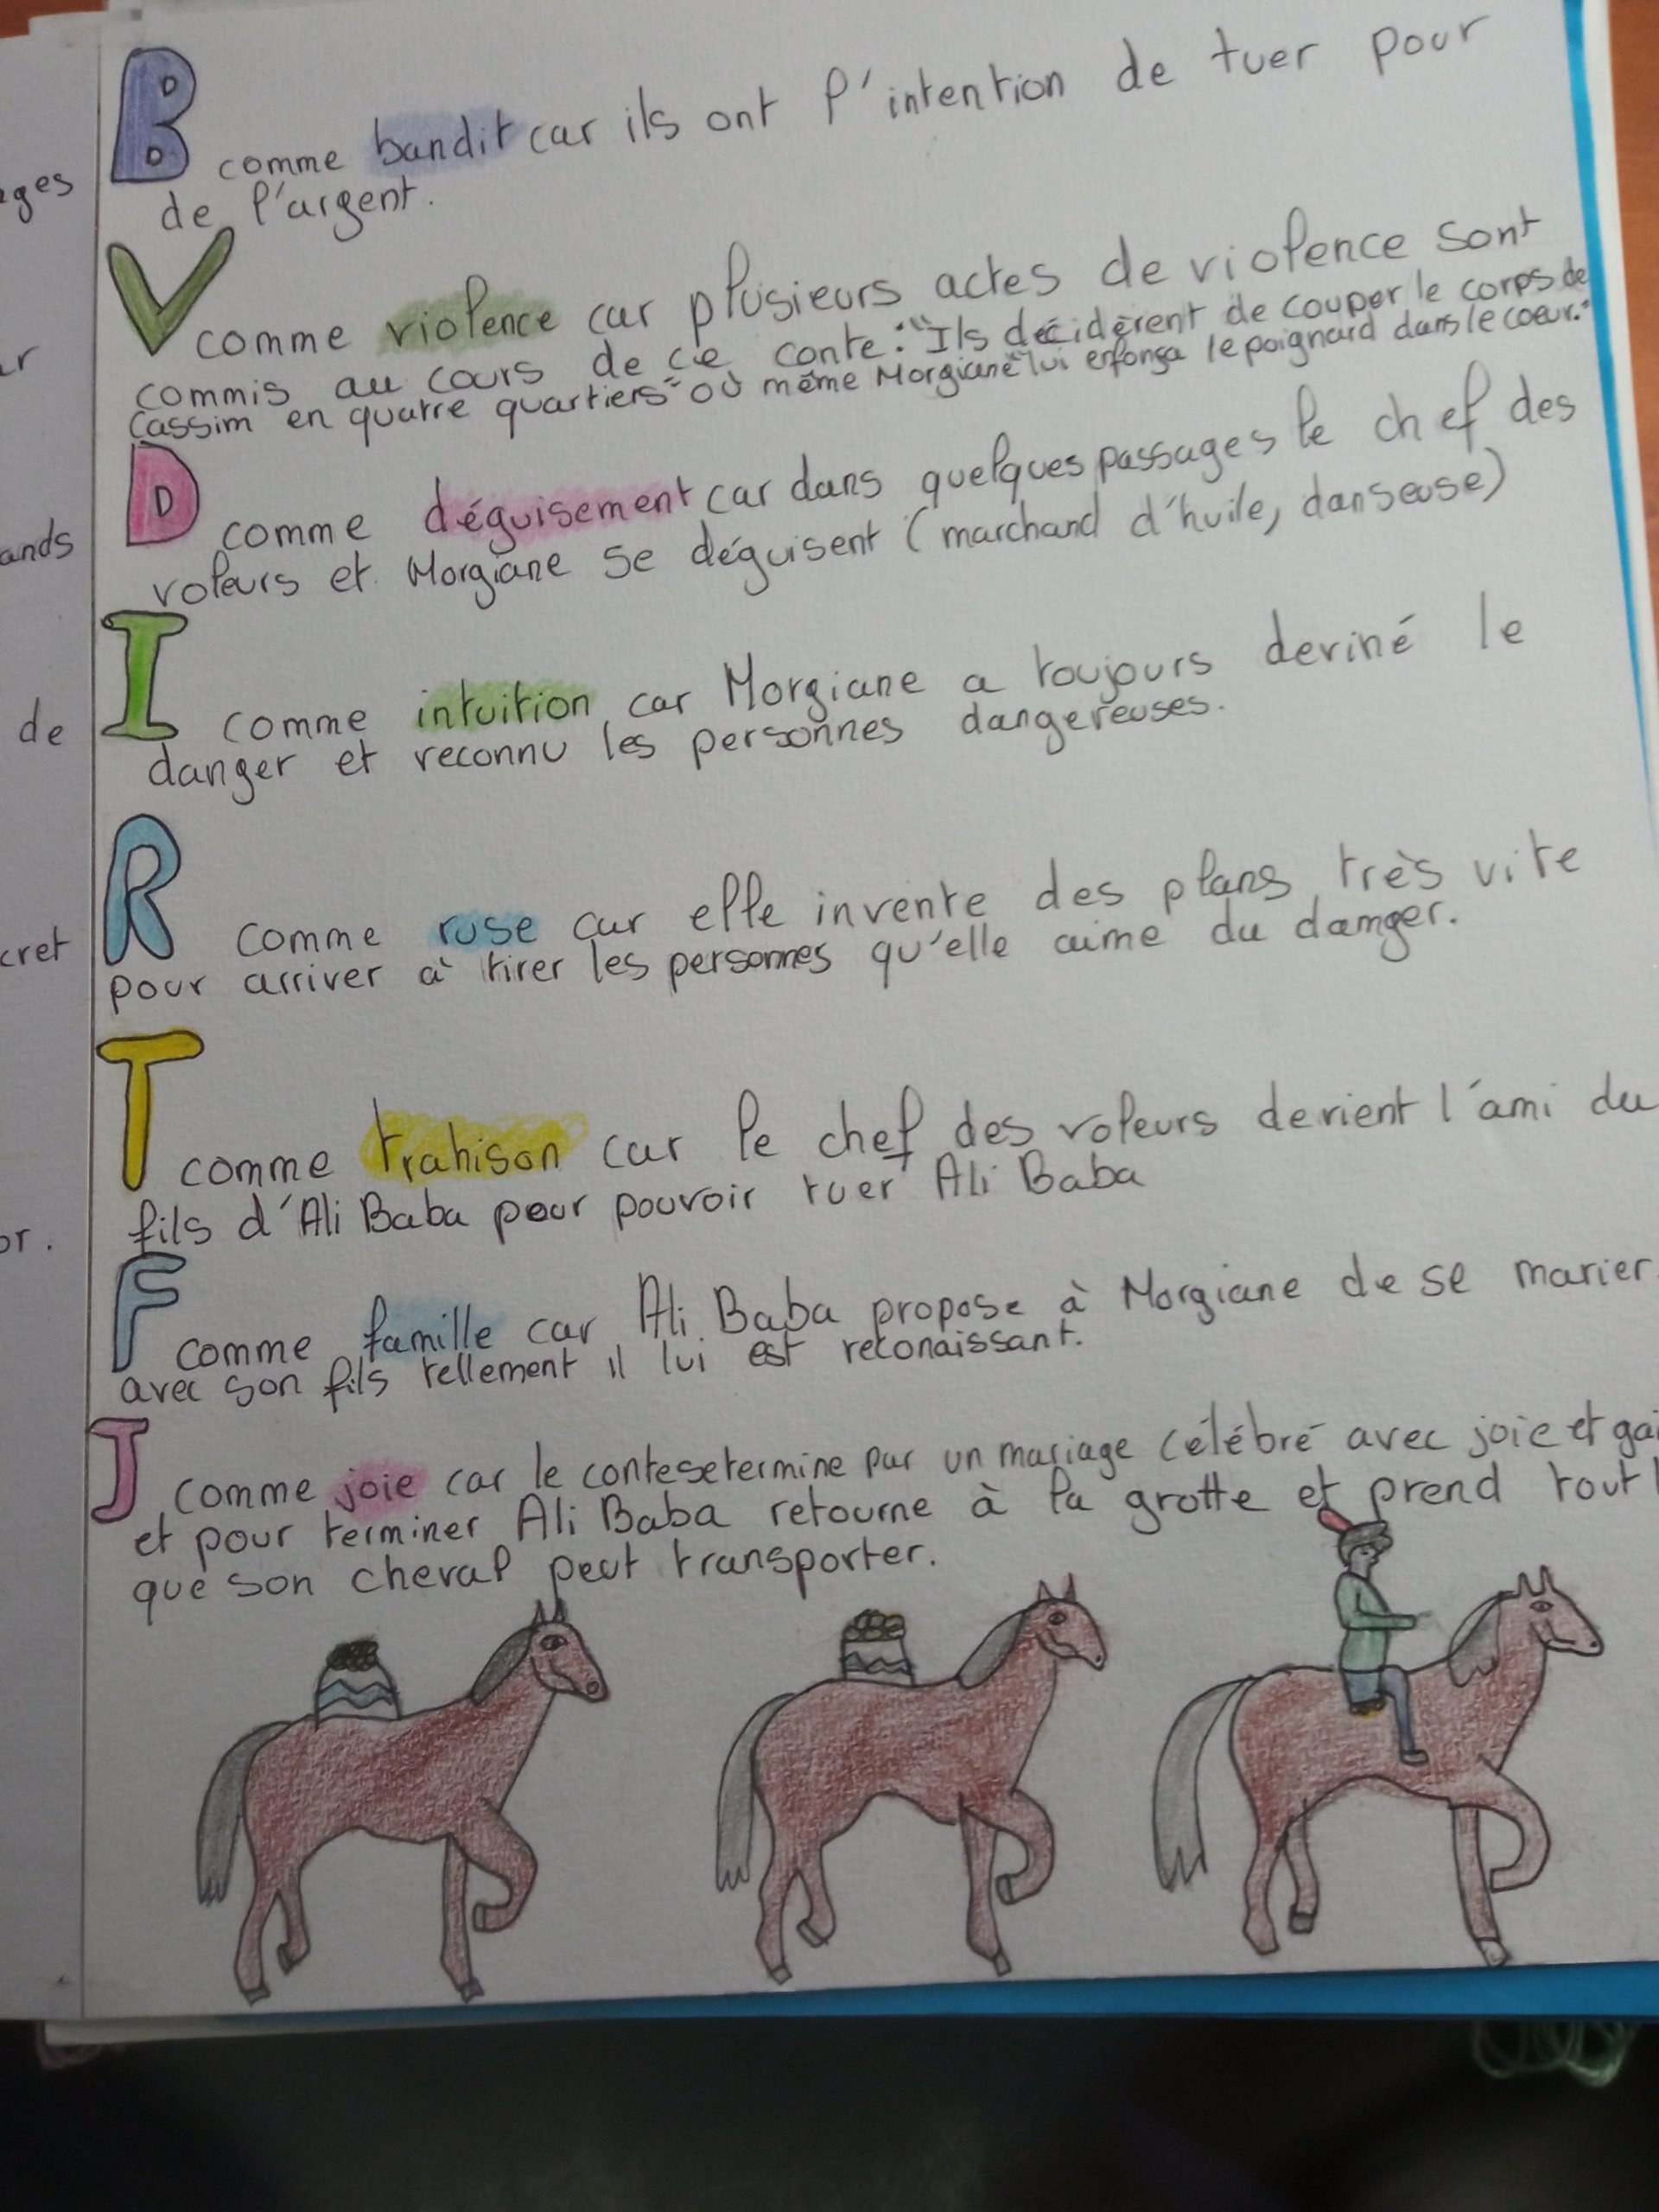 B comme bandit car ils ont l'intention de tuer pour
de l'argent.
V comme violence car plusieurs actes de violence sont
commis au cours de ce conte: "Ils décidèrent de couper le corps de
Cassim en quatre quartiers" où même Morgiane "lui enfonça le poignard dans le coeur."
D comme déguisement car dans quelques passages le chef des
voleurs et Morgiane se déguisent (marchand d'huile, danseuse)
I comme intuition car Morgiane a toujours deviné le
danger et reconnu les personnes dangereuses.
R comme ruse car elle invente des plans très vite
pour arriver à tirer les personnes qu'elle aime du danger.
T comme trahison car le chef des voleurs devient l'ami du
fils d'Ali Baba pour pouvoir tuer Ali Baba
F comme famille car Ali Baba propose à Morgiane de se marier
avec son fils tellement il lui est reconaissant.
J comme joie car le conte se termine par un mariage célébré avec joie et gai
et pour terminer Ali Baba retourne à la grotte et prend tout
que son cheval peut transporter.
ges
ands
de
cret
or.